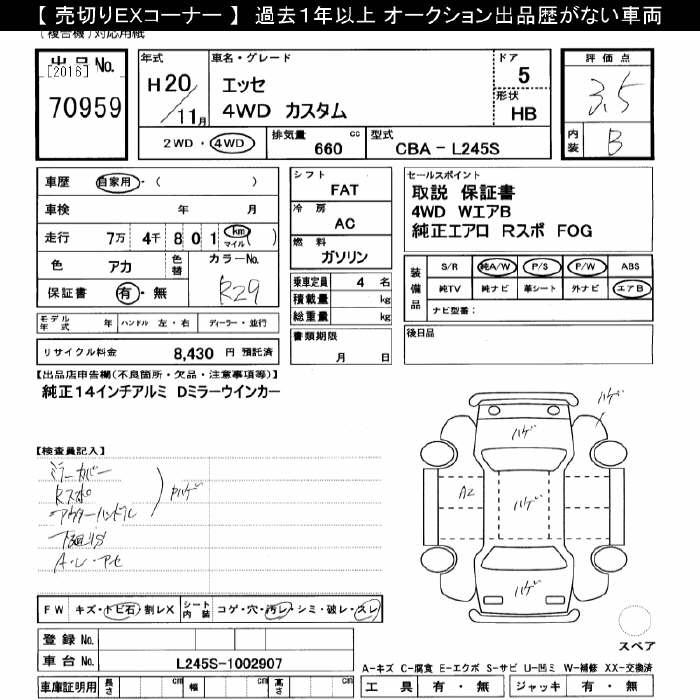 【 売切りEXコーナー 】 過去1年以上 オークション出品歴がない車両
(複合機)対応用紙
出品 No.
[2016]
70959
年式
H20/11月
車名・グレード
エッセ
4WD カスタム
ドア
5
形状
HB
2WD ・ 4WD
排気量
660 cc
型式
CBA - L245S
評価点
3.5
内装
B
車歴 自家用 ・ ( )
車検 年 月
走行 7万 4千 8 0 1 km マイル ( )
色 アカ
色替
カラーNo.
R29
保証書 有 ・ 無
モデル年式 年
ハンドル 左 ・ 右
ディーラー ・ 並行
リサイクル料金 8,430 円 預託済
シフト
FAT
冷房
AC
燃料
ガソリン
乗車定員 4 名
積載量 kg
総重量 kg
書類期限
月 日
セールスポイント
取説 保証書
4WD WエアB
純正エアロ Rスポ FOG
装備品
S/R 純A/W P/S P/W ABS
純TV 純ナビ 革シート 外ナビ エアB
ナビ型番:
後日品
【出品店申告欄(不良箇所・欠品・注意事項等)】
純正14インチアルミ Dミラーウインカー
【検査員記入】
ミラーカバー
Rスポ
アウターハンドル
Pハゲ
下廻りS
A・レ・アセ
ハゲ
ハゲ
A2
ハゲ
ハゲ
スペア
FW キズ・トビ石・割レX
シート内装 コゲ・穴・汚レ・シミ・破レ・スレ
登録 No.
車台 No. L245S-1002907
車庫証明用 長さ cm 幅 cm 高さ cm
A-キズ C-腐食 E-エクボ S-サビ U-凹ミ W-補修 XX-交換済
工具 有 ・ 無
ジャッキ 有 ・ 無